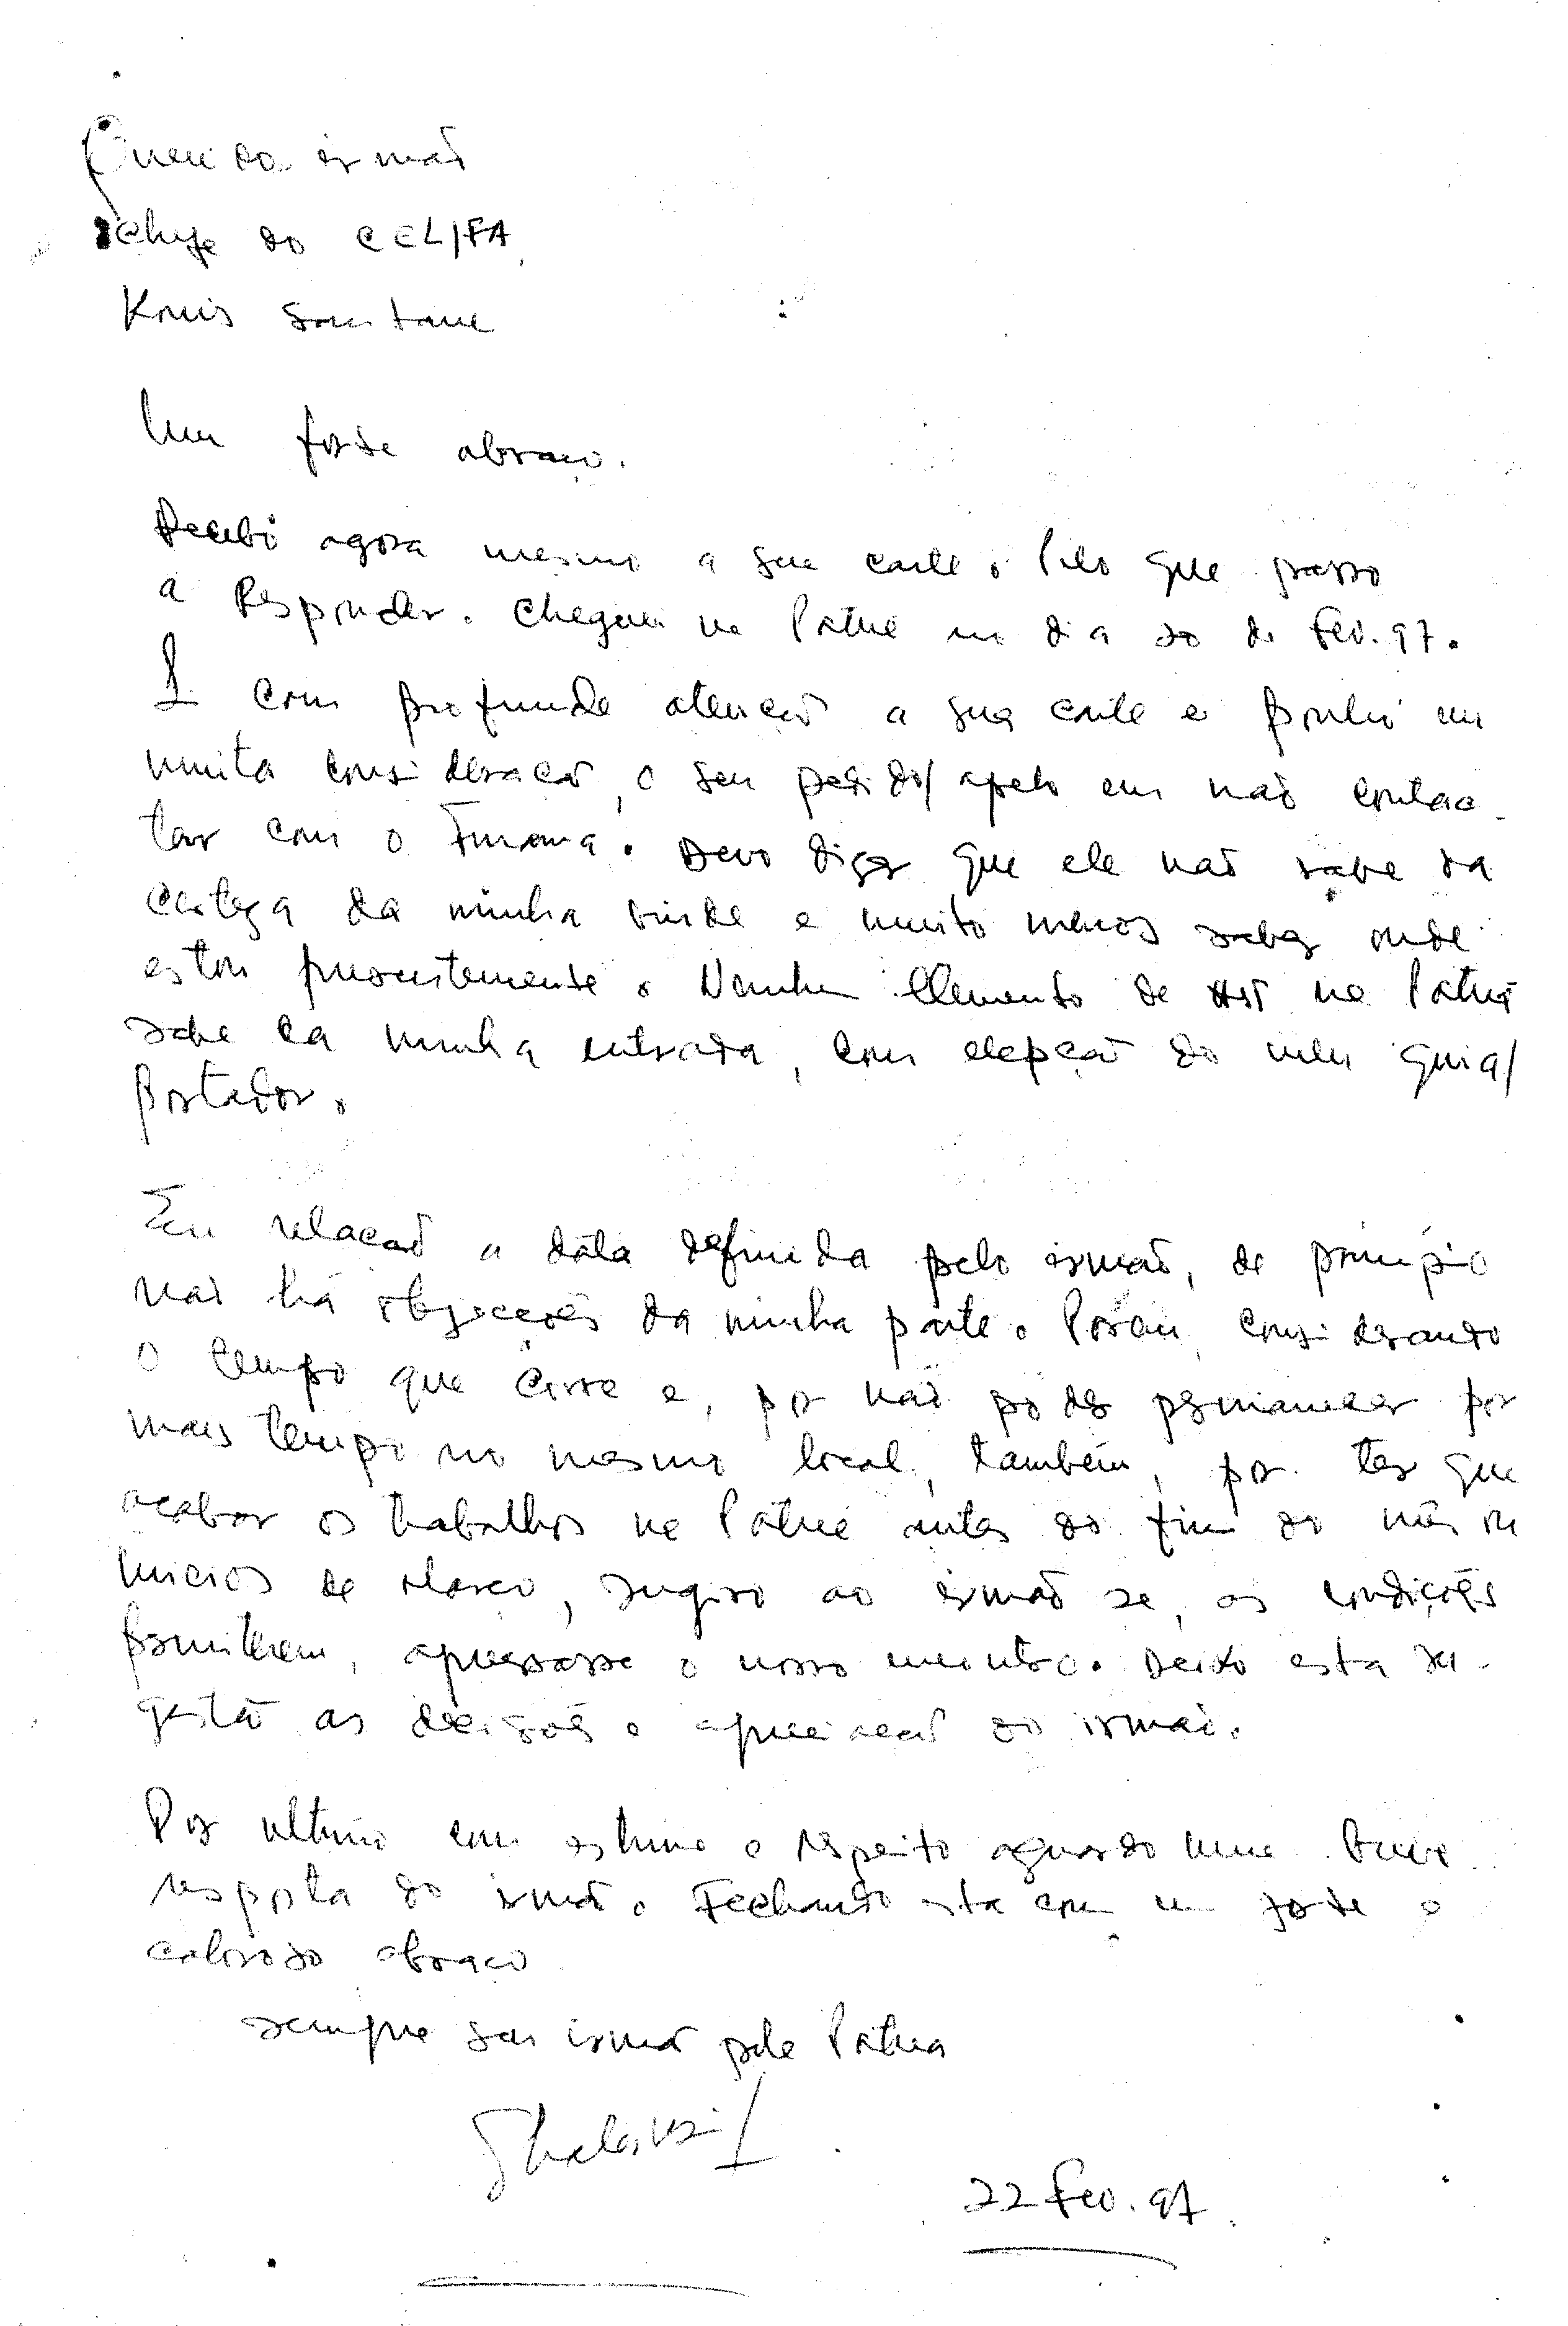 Querido irmão
chefe do CEL/FA
Konis Santane
Um forte abraço.
Recebi agora mesmo a sua carta. Pelo que passo
a Responder. Cheguei na Pátria no dia 20 de Fev. 97.
Li com profunda atenção a sua carta e ponho em
muita consideração, o seu pedido/apelo em não contac-
tar com o. Devo dizer que ele não sabe da
certeza da minha vinda e muito menos saber onde
estou presentemente. Nenhum Elemento de na Pátria
sabe da minha entrada, com excepção do meu guia/
Portador.
Em relação a data definida pelo irmão, de princípio
não há objecções da minha parte. Porém, considerando
o tempo que corre e, por não poder permanecer por
mais tempo no mesmo local, também, por ter que
acabar os trabalhos na Pátria antes do fim do mês ou
inicios de Março, sugiro ao irmão se, as condições
permitirem, apressasse o nosso encontro. Deixo esta su-
gestão as decisões e apreciação do irmão.
Por ultimo com estima e respeito aguardo uma breve
resposta do irmão. Fechando esta com um forte e
caloroso abraço
sempre seu irmão pela Pátria
22 Fev. 97.